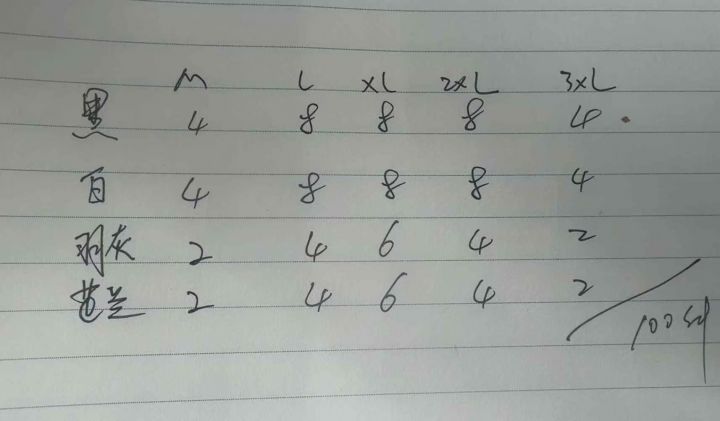 M L XL 2XL 3XL
黑 4 8 8 8 4
白 4 8 8 8 4
羽灰 2 4 6 4 2
2 4 6 4 2
100